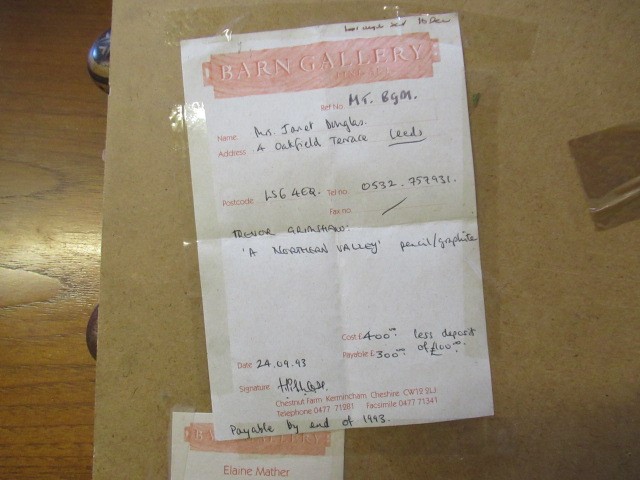 10 Dec
BARN GALLERY
Ref No. MT. BGM.
Name Mrs. Janet Douglas.
Address 4 Oakfield Terrace Leeds
Postcode LS6 4EQ. Tel no 0532. 757931.
Fax no
TREVOR GRIMSHAW:
'A NORTHERN VALLEY' pencil/graphite
Cost £400.00 less deposit
Payable £300.00 of £100.00.
Date 24.09.93
Signature
Chestnut Farm Kermincham, Cheshire CW12 2LJ
Telephone 0477 71281 Facsimile 0477 71341
Payable by end of 1993.
BARN GALLERY
Elaine Mather